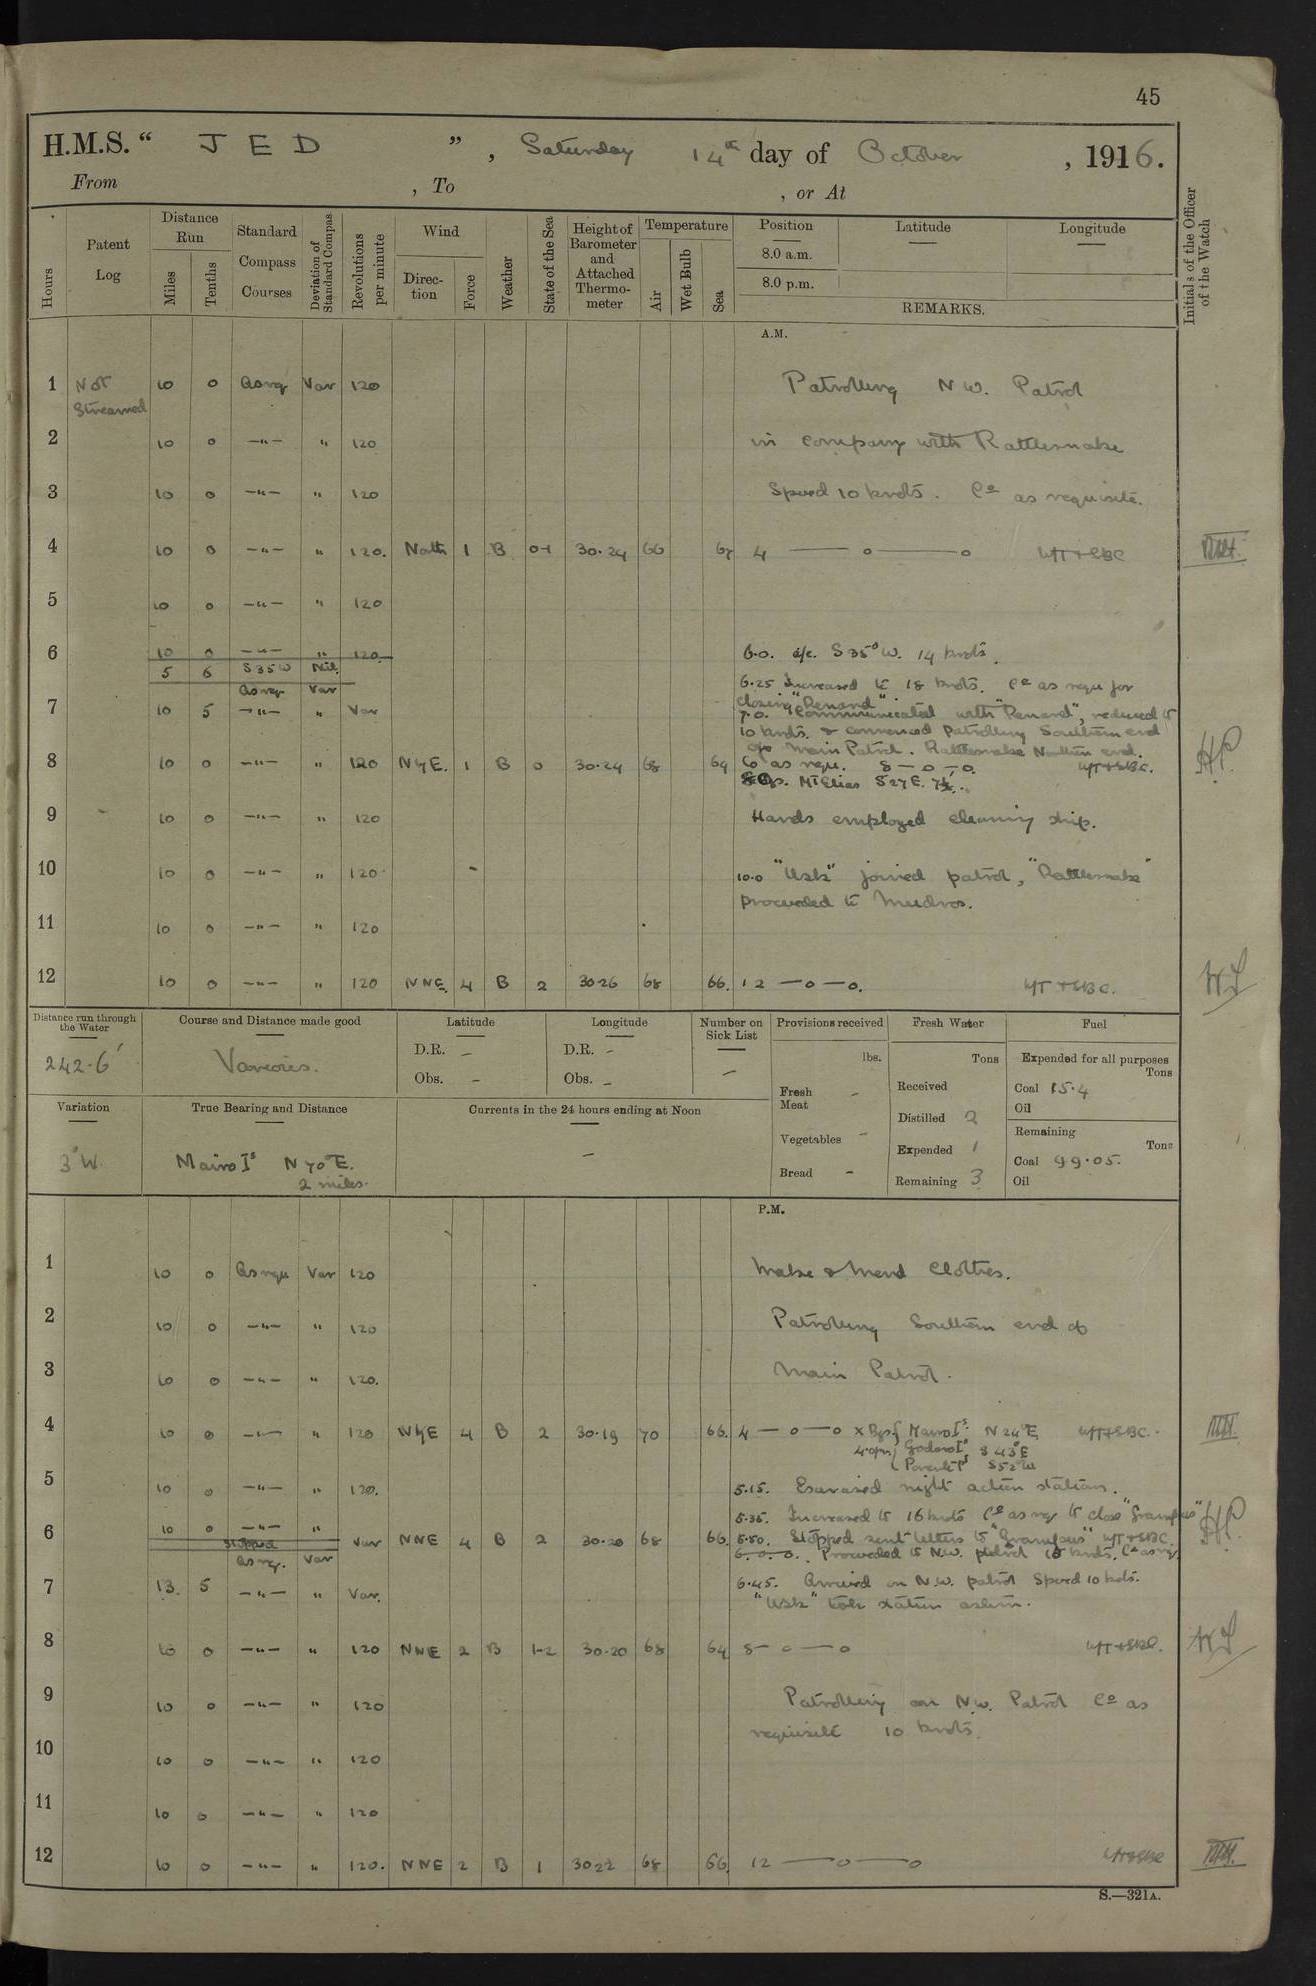 45
H.M.S. “ JED ” , Saturday 14th day of October , 1916.
From , To , or At
Hours
Patent Log
Distance Run
Miles
Tenths
Standard Compass Courses
Deviation of Standard Compass
Revolutions per minute
Wind
Direction
Force
Weather
State of the Sea
Height of Barometer and Attached Thermometer
Temperature
Air
Wet Bulb
Sea
Position Latitude Longitude
8.0 a.m.
8.0 p.m.
REMARKS.
Initials of the Officer of the Watch
A.M.
1 Not 10 0 As req Var 120 Patrolling N.W. Patrol
Streamed
2 10 0 —"— " 120 in company with Rattlesnake
3 10 0 —"— " 120 Speed 10 knots. Co as requisite.
4 10 0 —"— " 120. North 1 B 0-1 30.24 66 4 — o — o WT+SBC
5 10 0 —"— " 120
6 10 0 —"— " 120 6.0. a/c. S35°W. 14 knots.
5 6 S35W Nil
6.25 Increased to 18 knots. Co as requ for
As req Var
closing "Renard".
7 10 5 —"— " Var 7.0. Communicated with "Renard", reduced to
10 knots. & commenced patrolling Southern end
of Main Patrol. Rattlesnake Northern end.
8 10 0 —"— " 120 NyE. 1 B 0 30.24 68 64 Co as requ. 8 — o — o. WT+SBC. HP.
Mt Elias S27E. 7½'.
9 10 0 —"— " 120 Hands employed cleaning ship.
10 10 0 —"— " 120 10.0 "Usk" joined patrol, "Rattlesnake"
proceeded to Mudros.
11 10 0 —"— " 120
12 10 0 —"— " 120 NNE. 4 B 2 30.26 68 66. 12 — o — o. WT+SBC.
Distance run through the Water
242.6'
Course and Distance made good
Various.
Latitude
D.R. –
Obs. –
Longitude
D.R. –
Obs. –
Number on Sick List
–
Provisions received
lbs.
Fresh Meat –
Vegetables –
Bread –
Fresh Water
Tons
Received
Distilled 2
Expended 1
Remaining 3
Fuel
Expended for all purposes
Tons
Coal 15.4
Oil
Remaining
Tons
Coal 99.05.
Oil
Variation
3°W.
True Bearing and Distance
Mairo Is N70°E.
2 miles.
Currents in the 24 hours ending at Noon
–
P.M.
1 10 0 As requ Var 120 Make & Mend Clothes.
2 10 0 —"— " 120 Patrolling Southern end of
3 10 0 —"— " 120. Main Patrol.
4 10 0 —"— " 120 NyE 4 B 2 30.19 70 66. 4 — o — o x Bgs { Mairo Is. N24°E, WT+SBC.
4.0pm S43°E
S52°W
5 10 0 —"— " 120. 5.15. Exercised night action stations.
5.35. Increased to 16 knots Co as req to close "Grampus"
6 10 0 —"— " Var NNE 4 B 2 30.20 68 66. 5.50. Stopped sent letters to "Grampus" WT+SBC. HP.
Stopped
As req. Var
6.0.0. Proceeded to N.W. patrol 15 knots. Co as req.
7 13. 5 —"— " Var. 6.45. Arrived on N.W. patrol Speed 10 knots.
"Usk" took station astern.
8 10 0 —"— " 120 NNE 2 B 1-2 30.20 68 64 8 — o — o WT+SBC.
9 10 0 —"— " 120 Patrolling on N.W. Patrol Co as
requisite 10 knots.
10 10 0 —"— " 120
11 10 0 —"— " 120
12 10 0 —"— " 120. NNE 2 B 1 3022 68 66. 12 — o — o WT+SBC
S.—321A.